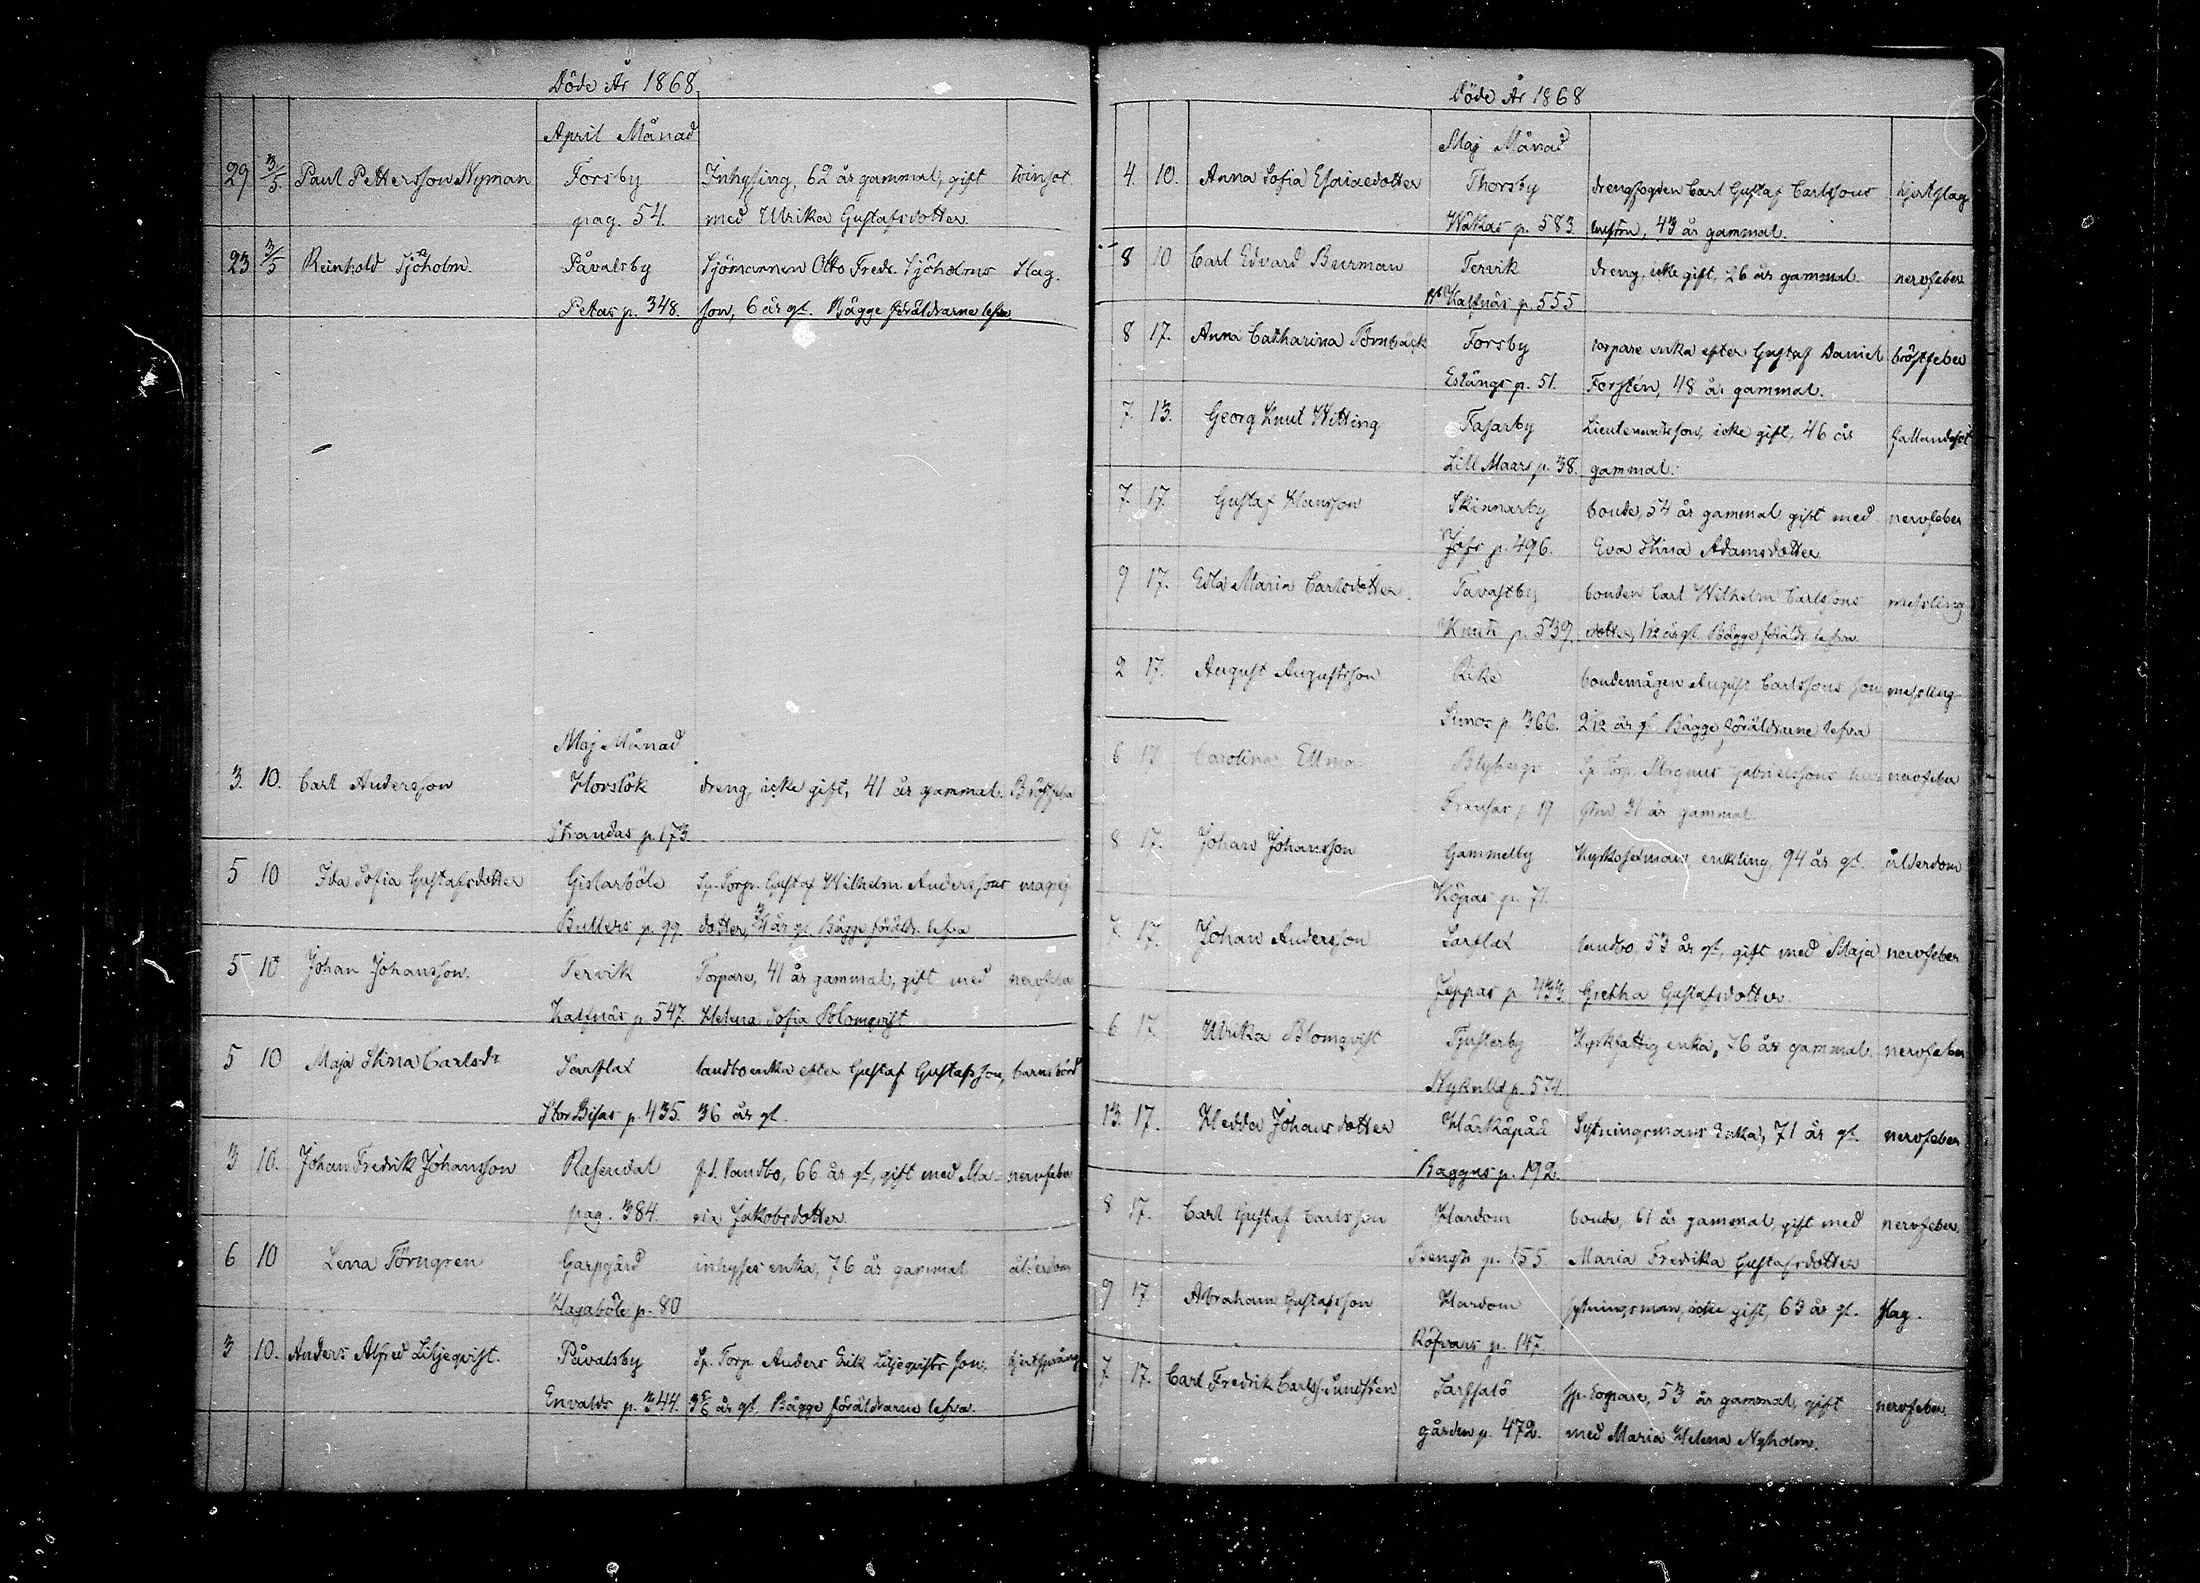 Döde År 1868.
April Månad
29 3/5. Paul Pettersson Nyman Forsby Inhysing, 62 år gammal, gift twinsot
pag. 54. med Ulrika Gustafsdotter
23 3/5 Reinhold Sjöholm. Påvalsby Sjömannen Otto Fredr. Sjöholms Slag.
Petas p. 348. son, 6 år gl. Bägge föräldrarne lefva
Maj Månad
3. 10. Carl Andersson Horslök dreng, icke gift, 41 år gammal.
Strandas p. 173
5 10 Ida Sofia Gustafsdotter Gislarböle Sp. Torp. Gustaf Wilhelm Anderssons
Butters p. 99. dotter, 3/4 år gl Bägge föräldr. lefva
5 10 Johan Johansson. Tervik Torpare, 41 år gammal, gift med nervfeber
Kalfnäs p 547. Helena Sofia Blomqvist
5 10 Maja Stina Carlsdr Sarflax landboenka efter Gustaf Gustafsson, barnsbörd
Stor Bisas p. 435. 36 år gl.
3 10. Johan Fredrik Johansson Rasendal f.d. landbo, 66 år gl, gift med Ma- nervfeber
pag. 384. ria Jakobsdotter
6 10 Lena Törngren Garpgård inhyses enka, 76 år gammal ålderdom
Hagaböle p. 80
3 10. Anders Alfred Liljeqvist. Påvalsby Sp. Torp Anders Erik Liljeqvists son.
Envalds p. 344. 3 5/6 år gl. Bägge föräldrarne lefva.
Döde År 1868
Maj Månad
4. 10. Anna Sofia Esaiaedotter Thorsby drengfogden Carl Gustaf Carlssons hjertslag
Wäkas p. 583. hustru, 43 år gammal.
8 10 Carl Edvard Burman Tervik dreng, icke gift, 26 år gammal nervfeber
Kalfnäs p. 555
8 17. Anna Catharina Törnbäck Forsby torpare enka efter Gustaf Daniel bröstfeber
Eslångs p. 51. Forstén, 48 år gammal.
7. 13. Georg Knut Witting Fasarby Lieutenantsson, icke gift, 46 år fallandesot
Lill Maars p. 38. gammal.
7. 17. Gustaf Hansson Skinnarby bonde, 54 år gammal gift med nervfeber
p. 496. Eva Stina Adamsdotter
9 17. Edla Maria Carlsdotter. Tavastby bonden Carl Wilhelm Carlssons messling
Knuts p. 539. dotter, 1/12 år gl. Bägge föräldr lefva
2 17. August Augustsson Rike bondemågen August Carlssons son messling
Simos p. 366. 2/12 år gl Bägge föräldrarne lefva
6 17 Carolina Blybergs Sp. Torp. Magnus Gabrielssons nervfeber
Fransas p. 17. 31 år gammal.
8 17. Johan Johansson Gammelby enkling, 94 år gl. ålderdom
Köpas p. 71.
7 17. Johan Andersson Sarflax landbo, 53 år gl, gift med Maja nervfeber
Jeppas p 433. Gretha Gustafsdotter
6 17. Ulrika Blomqvist Tjusterby Kyrkfattig enka, 76 år gammal. nervfeber
p. 574.
13. 17. Hedda Johansdotter Härkäpää Sytningsmans Enka, 71 år gl. nervfeber
Baggas p. 192.
8 17. Carl Gustaf Carlsson Hardom bonde, 61 år gammal, gift med nervfeber.
Bengts p. 155 Maria Fredrika Gustafsdotter
9 17. Abraham Gustafsson Hardom sytningsman, icke gift, 63 år gl. slag.
Röfvars p. 147.
7 17. Carl Fredrik Carlss. Sundsten Sarfsalö sp. torpare, 53 år gammal, gift nervfeber
gården p. 472. med Maria Helena Nyholm.